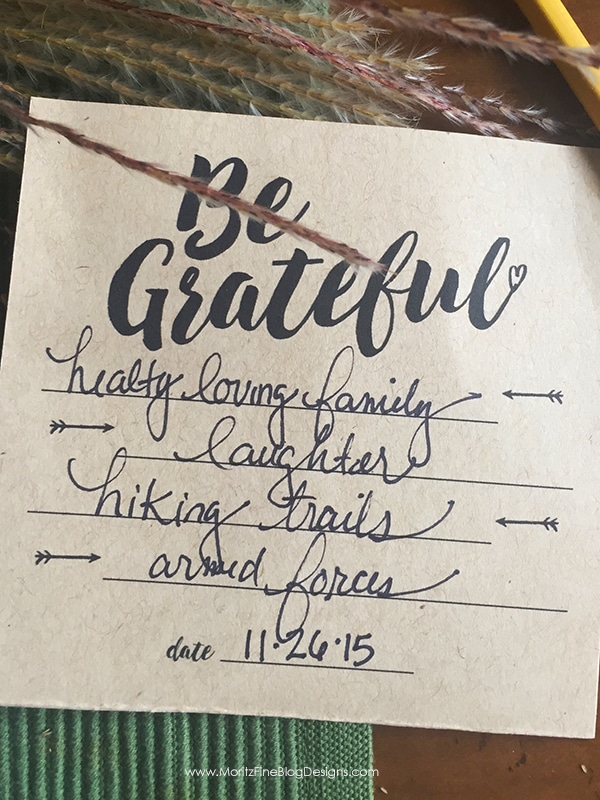 Be
Grateful
healty loving family
laughter
hiking trails
armed forces
date 11·26·15
www.MoritzFineBlogDesigns.com